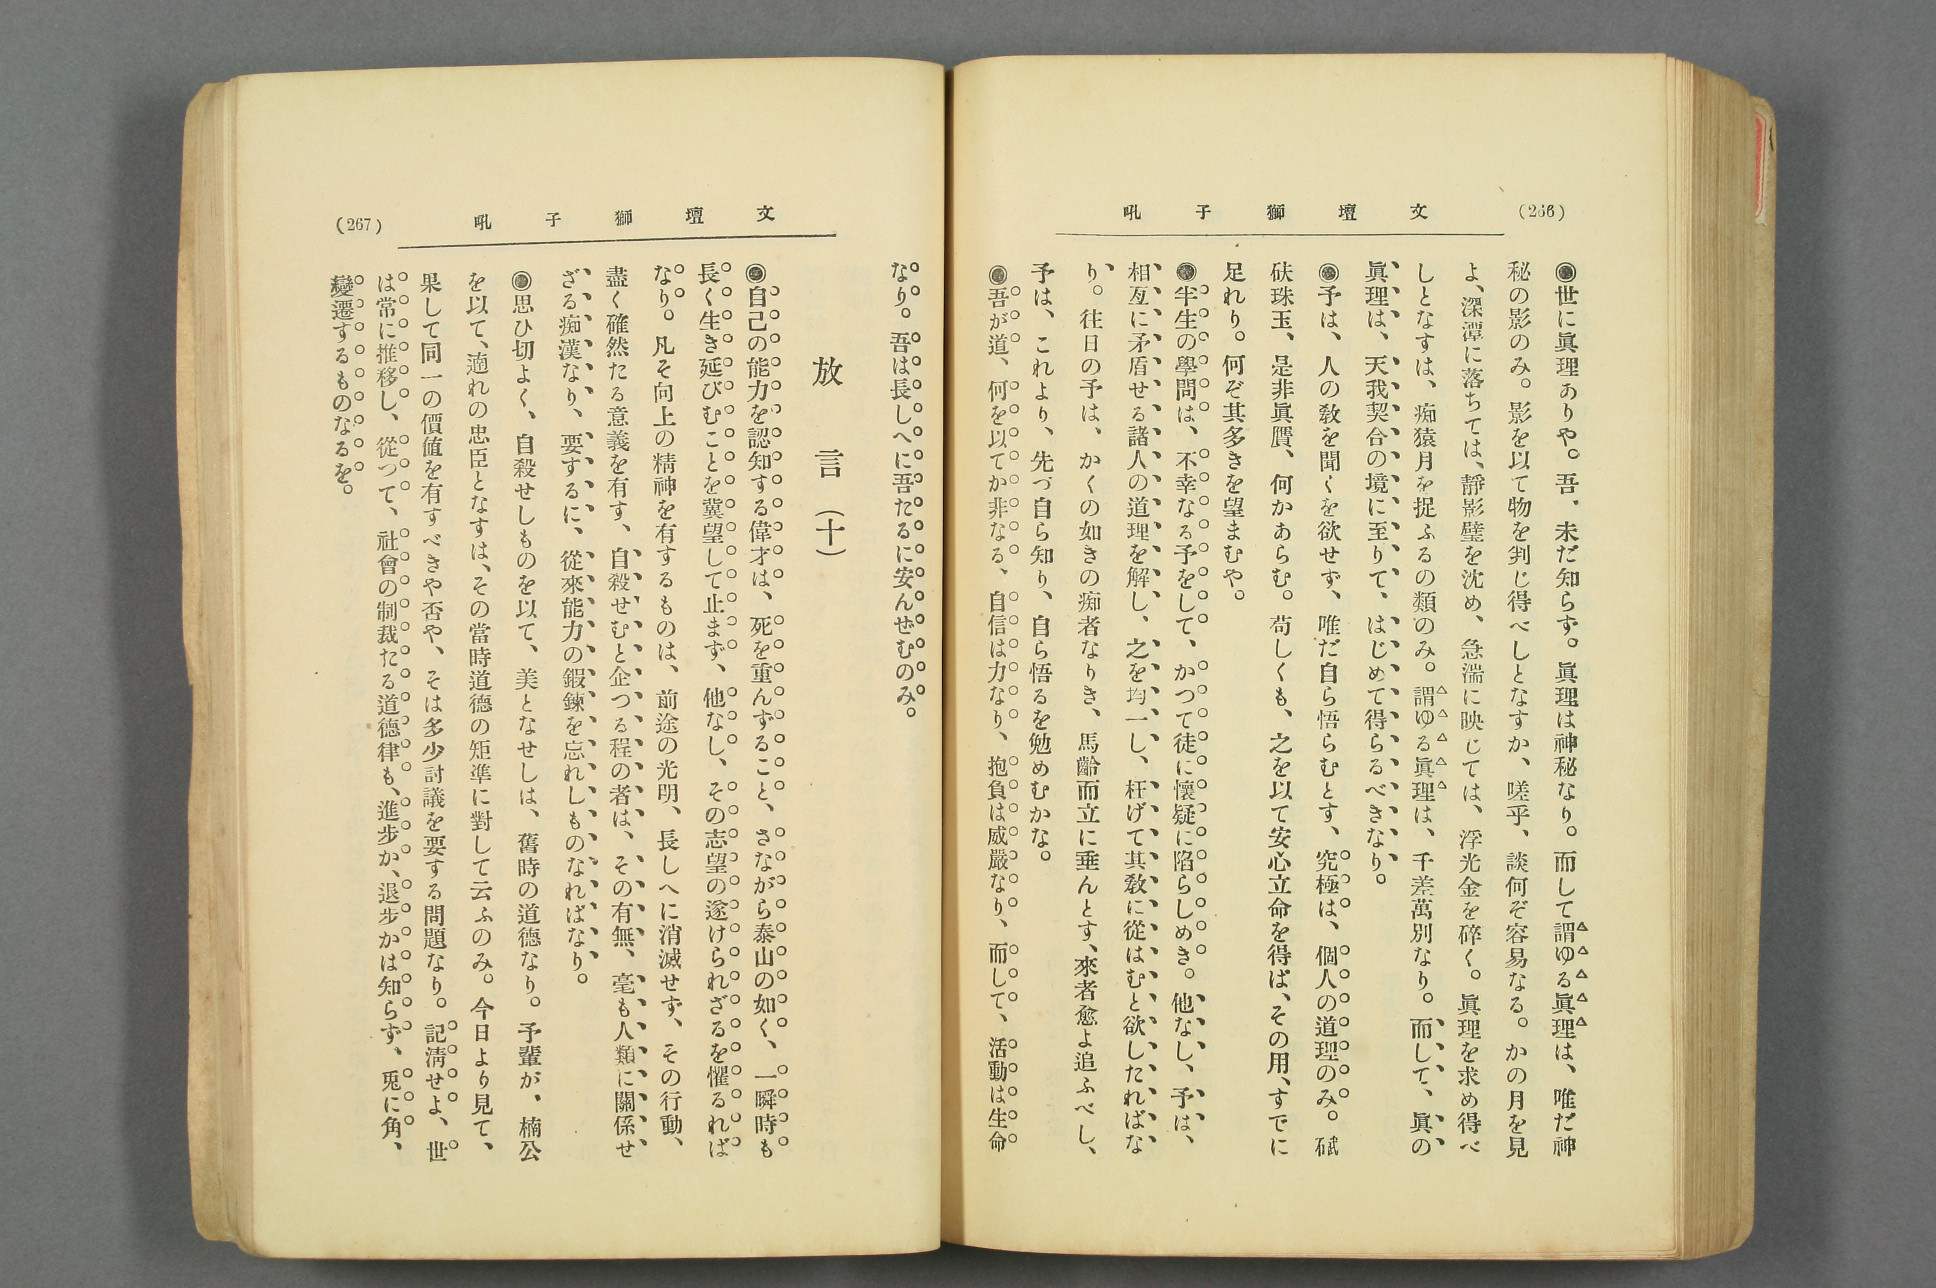 (266)
文壇獅子吼
◉世に眞理ありや。吾、未だ知らず。眞理は神秘なり。而して謂ゆる眞理は、唯だ神
秘の影のみ。影を以て物を判じ得べしとなすか、嗟乎、談何ぞ容易なる。かの月を見
よ、深潭に落ちては、靜影璧を沈め、急湍に映じては、浮光金を碎く。眞理を求め得べ
しとなすは、痴猿月を捉ふるの類のみ。謂ゆる眞理は、千差萬別なり。而して、眞の
眞理は、天我契合の境に至りて、はじめて得らるべきなり。
◉予は、人の敎を聞くを欲せず、唯だ自ら悟らむとす、究極は、個人の道理のみ。碔
砆珠玉、是非眞贋、何かあらむ。苟しくも、之を以て安心立命を得ば、その用、すでに
足れり。何ぞ其多きを望まむや。
◉半生の學問は、不幸なる予をして、かつて徒に懷疑に陷らしめき。他なし、予は、
相互に矛盾せる諸人の道理を解し、之を均一し、枉げて其敎に從はむと欲したればな
り。往日の予は、かくの如きの痴者なりき、馬齡而立に垂んとす、來者愈よ追ふべし、
予は、これより、先づ自ら知り、自ら悟るを勉めむかな。
◉吾が道、何を以てか非なる、自信は力なり、抱負は威嚴なり、而して、活動は生命
文壇獅子吼
(267)
なり。吾は長しへに吾たるに安んぜむのみ。
放言(十)
◉自己の能力を認知する偉才は、死を重んずること、さながら泰山の如く、一瞬時も
長く生き延びむことを冀望して止まず、他なし、その志望の遂けられざるを懼るれば
なり。凡そ向上の精神を有するものは、前途の光明、長しへに消滅せず、その行動、
盡く確然たる意義を有す、自殺せむと企つる程の者は、その有無、毫も人類に關係せ
ざる痴漢なり、要するに、從來能力の鍜鍊を忘れしものなればなり。
◉思ひ切よく、自殺せしものを以て、美となせしは、舊時の道德なり。予輩が、楠公
を以て、適れの忠臣となすは、その當時道德の矩準に對して云ふのみ。今日より見て、
果して同一の價値を有すべきや否や、そは多少討議を要する問題なり。記淸せよ、世
は常に推移し、從つて、社會の制裁たる道德律も、進步か、退步かは知らず、兎に角、
變遷するものなるを。